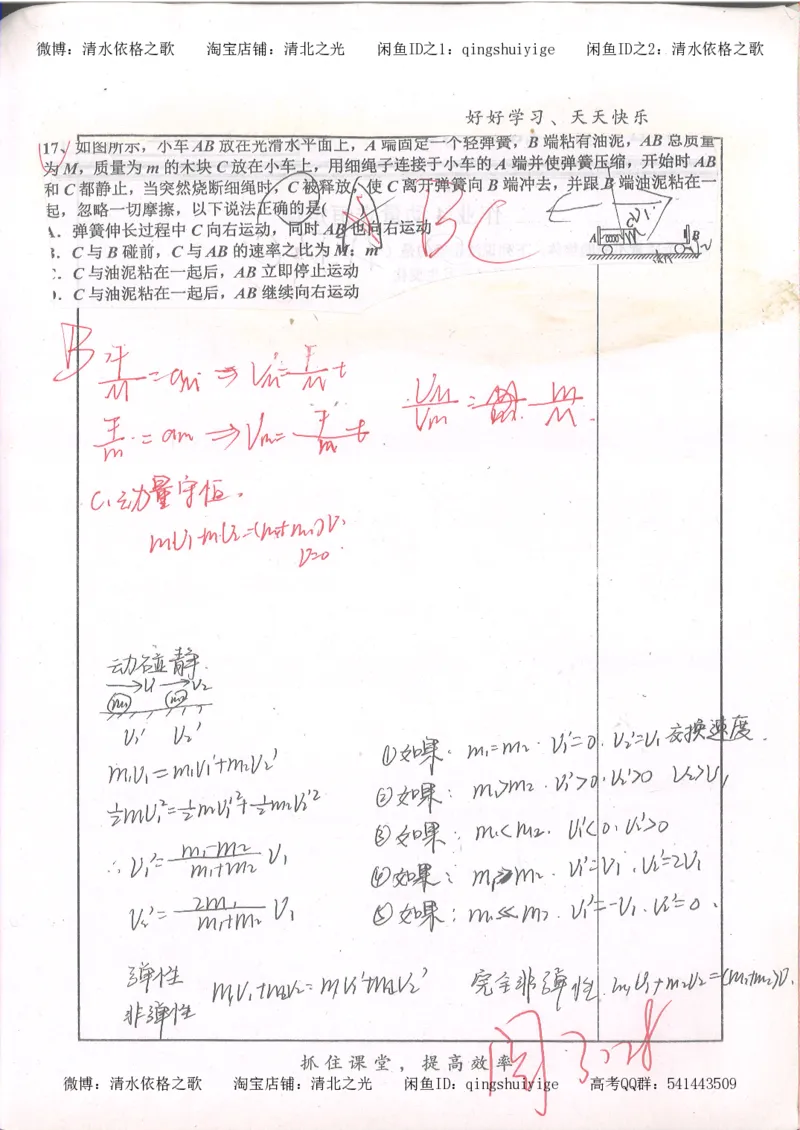 微博：清水依格之歌 淘宝店铺：清北之光 闲鱼ID之1：qingshuiyige 闲鱼ID之2：清水依格之歌
好好学习、天天快乐
17、如图所示，小车 AB 放在光滑水平面上，A 端固定一个轻弹簧，B 端粘有油泥，AB 总质量
为 M，质量为 m 的木块 C 放在小车上，用细绳子连接于小车的 A 端并使弹簧压缩，开始时 AB
和 C 都静止，当突然烧断细绳时，C 被释放、使 C 离开弹簧向 B 端冲去，并跟 B 端油泥粘在一
起，忽略一切摩擦，以下说法正确的是（ ）
A．弹簧伸长过程中 C 向右运动，同时 AB 也向右运动
B．C 与 B 碰前，C 与 AB 的速率之比为 M：m
C．C 与油泥粘在一起后，AB 立即停止运动
D．C 与油泥粘在一起后，AB 继续向右运动
BC
A B
B F/M = aM ⇒ VM = F/M t
F/m = am ⇒ Vm = F/m t
VM/Vm = m/M
C.动量守恒.
v=0
动碰静.
→V1 →V2
m1 m2
V1' V2'
m1V1=m1V1'+m2V2'
½mV1²=½mV1'²+½m2V2'²
∴V1'= m1-m2/m1+m2 V1
V2'= 2m1/m1+m2 V1
①如果：m1=m2. V1'=0. V2'=V1 交换速度.
②如果：m1>m2. V1'>0. V2'>0 V2>V1
③如果：m1<m2. V1'<0. V2'>0
④如果：m1≫m2. V1'=V1. V2'=2V1
⑤如果：m1≪m2. V1'=-V1. V2'=0.
弹性
非弹性
m1V1+m2V2=m1V1'+m2V2'
完全非弹性. m1V1+m2V2=(m1+m2)V.
抓住课堂，提高效率
微博：清水依格之歌 淘宝店铺：清北之光 闲鱼ID：qingshuiyige 高考QQ群：541443509